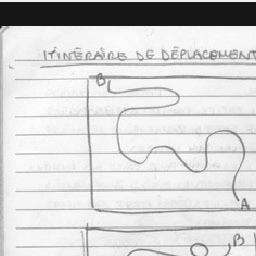 ITINÉRAIRE DE DÉPLACEMENT
B
A
B